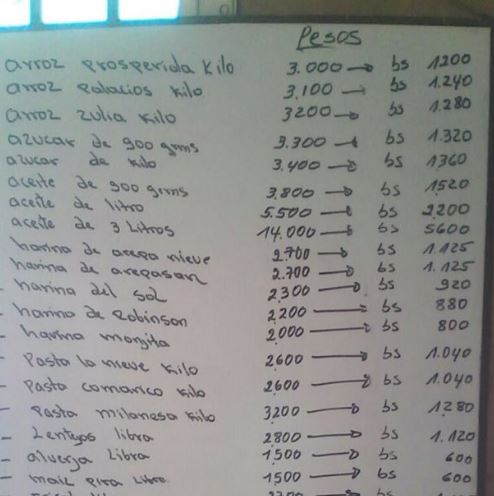 Pesos
arroz prosperida kilo 3.000 → bs 1200
arroz palacios kilo 3.100 → bs 1.240
arroz zulia kilo 3200 → bs 1.280
azucar de 900 grms 3.300 → bs 1.320
azucar de kilo 3.400 → bs 1360
aceite de 900 grms 3.800 → bs 1520
aceite de litro 5.500 → bs 2,200
aceite de 3 litros 14.000 → bs 5600
harina de arepa nieve 2.700 → bs 1.125
harina de arepasan 2.700 → bs 1.125
- harina del sol 2300 → bs 920
- harina de Robinson 2,200 → bs 880
- harina monjita 2000 → bs 800
- Pasta la nieve kilo 2600 → bs 1.040
- Pasta comarico kilo 2600 → bs 1.040
- Pasta milanesa kilo 3,200 → bs 1280
- Lentejas libra 2800 → bs 1.120
- alverja Libra 1,500 → bs 600
- maiz pira Libra 1500 → bs 600
bs